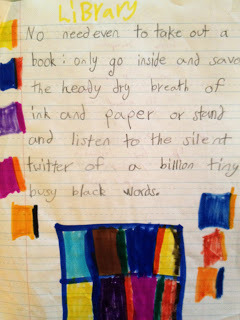 LiBRARY
No need even to take out a
book: only go inside and save
the heady dry breath of
ink and paper or stand
and listen to the silent
twitter of a billion tiny
busy black words.